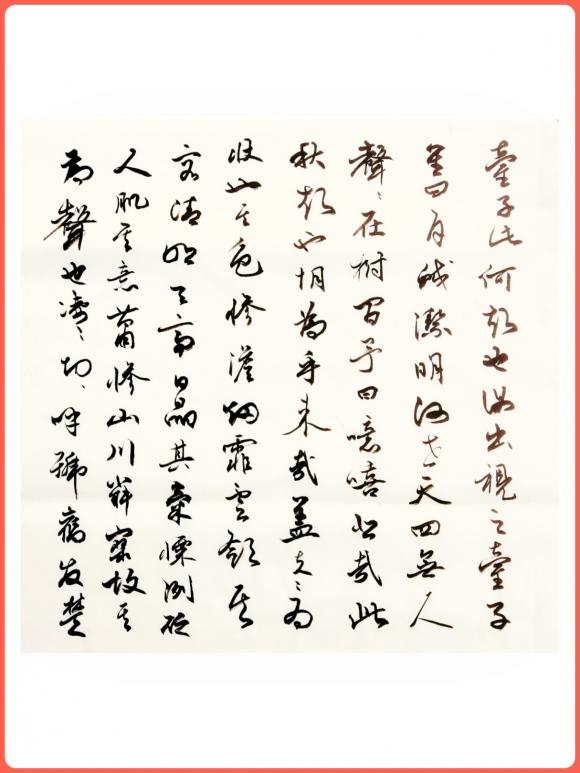 童子此何聲也汝出視之童子
星曰月皎潔明河在天四無人
聲〻在樹間予曰噫嘻悲哉此
秋聲也胡為乎來哉蓋夫〻為
狀也其色慘淡烟霏雲斂其
容清明天高日晶其氣慄冽砭
人肌其意蕭山川故其
為聲也淒〻切〻呼號發